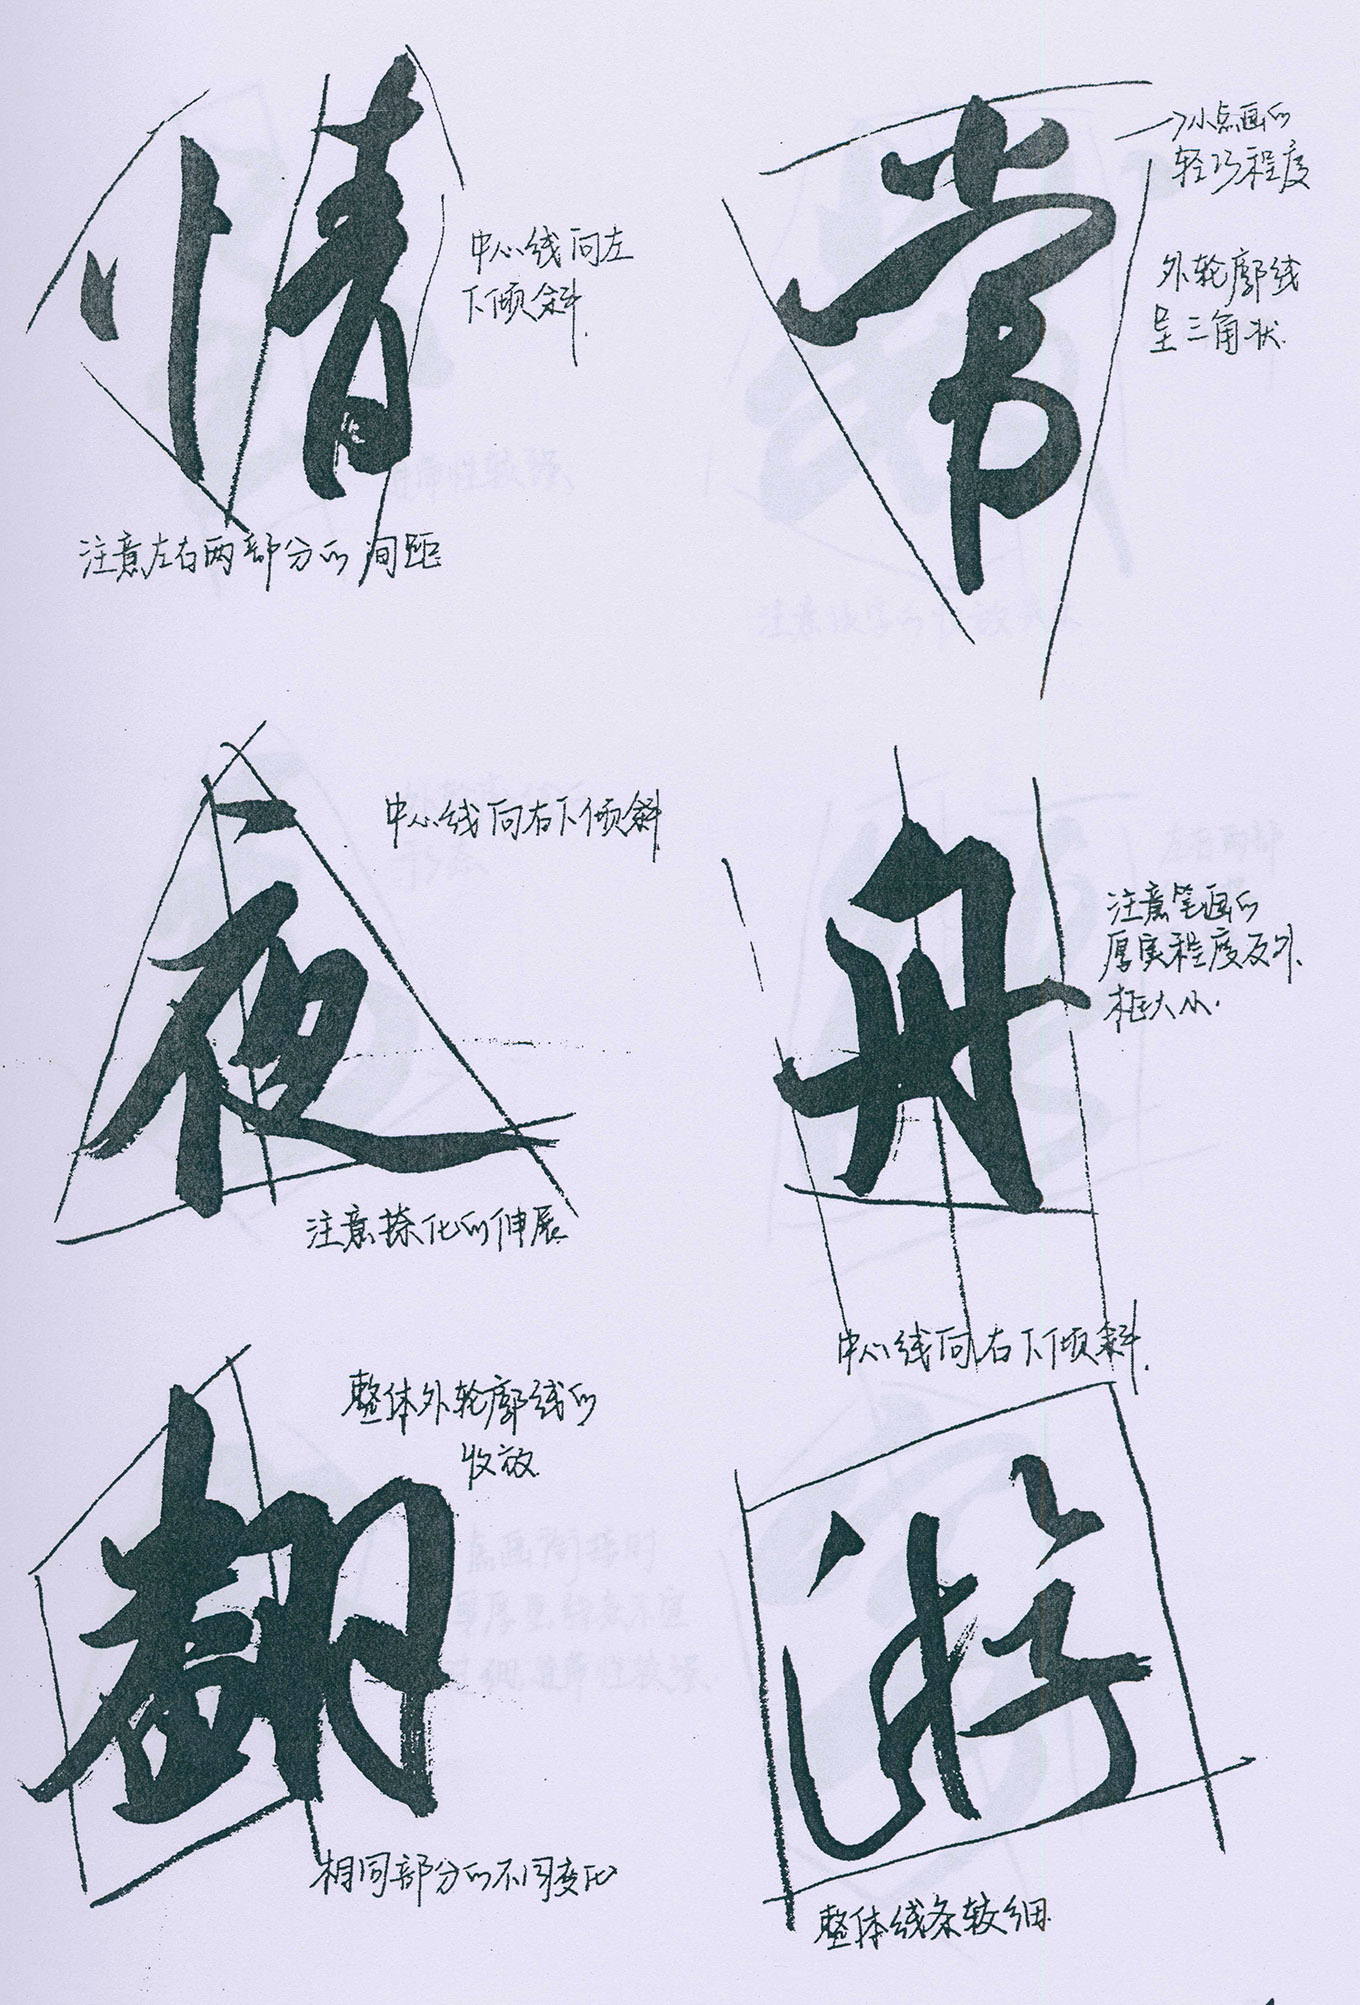 情
中心线向左
下倾斜.
注意左右两部分的间距
常
→小点画的
轻巧程度
外轮廓线
呈三角状.
夜
中心线向右下倾斜
注意捺化的伸展
舟
注意笔画的
厚实程度及外
框大小.
中心线向右下倾斜.
整体外轮廓线的
收放
相同部分的不同变化
游
整体线条较细.